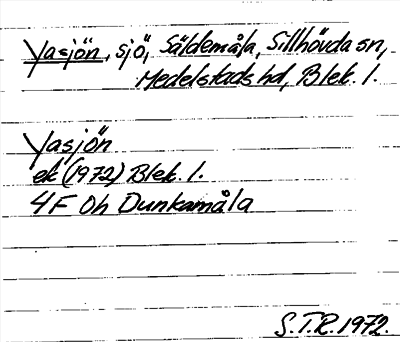 Yasjön, sjö, Säldemåla, Sillhövda sn,
Medelstads hd, Blek. l.
Yasjön
ek (1972) Blek. l.
4F 0h Dunkamåla
S.T.R. 1972.